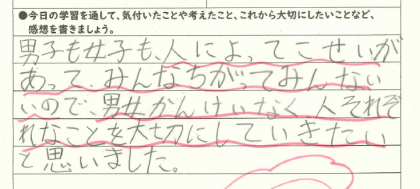 ●今日の学習を通して、気付いたことや考えたこと、これから大切にしたいことなど、
感想を書きましょう。
男子も女子も、人によってこせいが
あって、みんなちがってみんない
いので、男女かんけいなく、人それぞ
れなことを大切にしていきたい
と思いました。